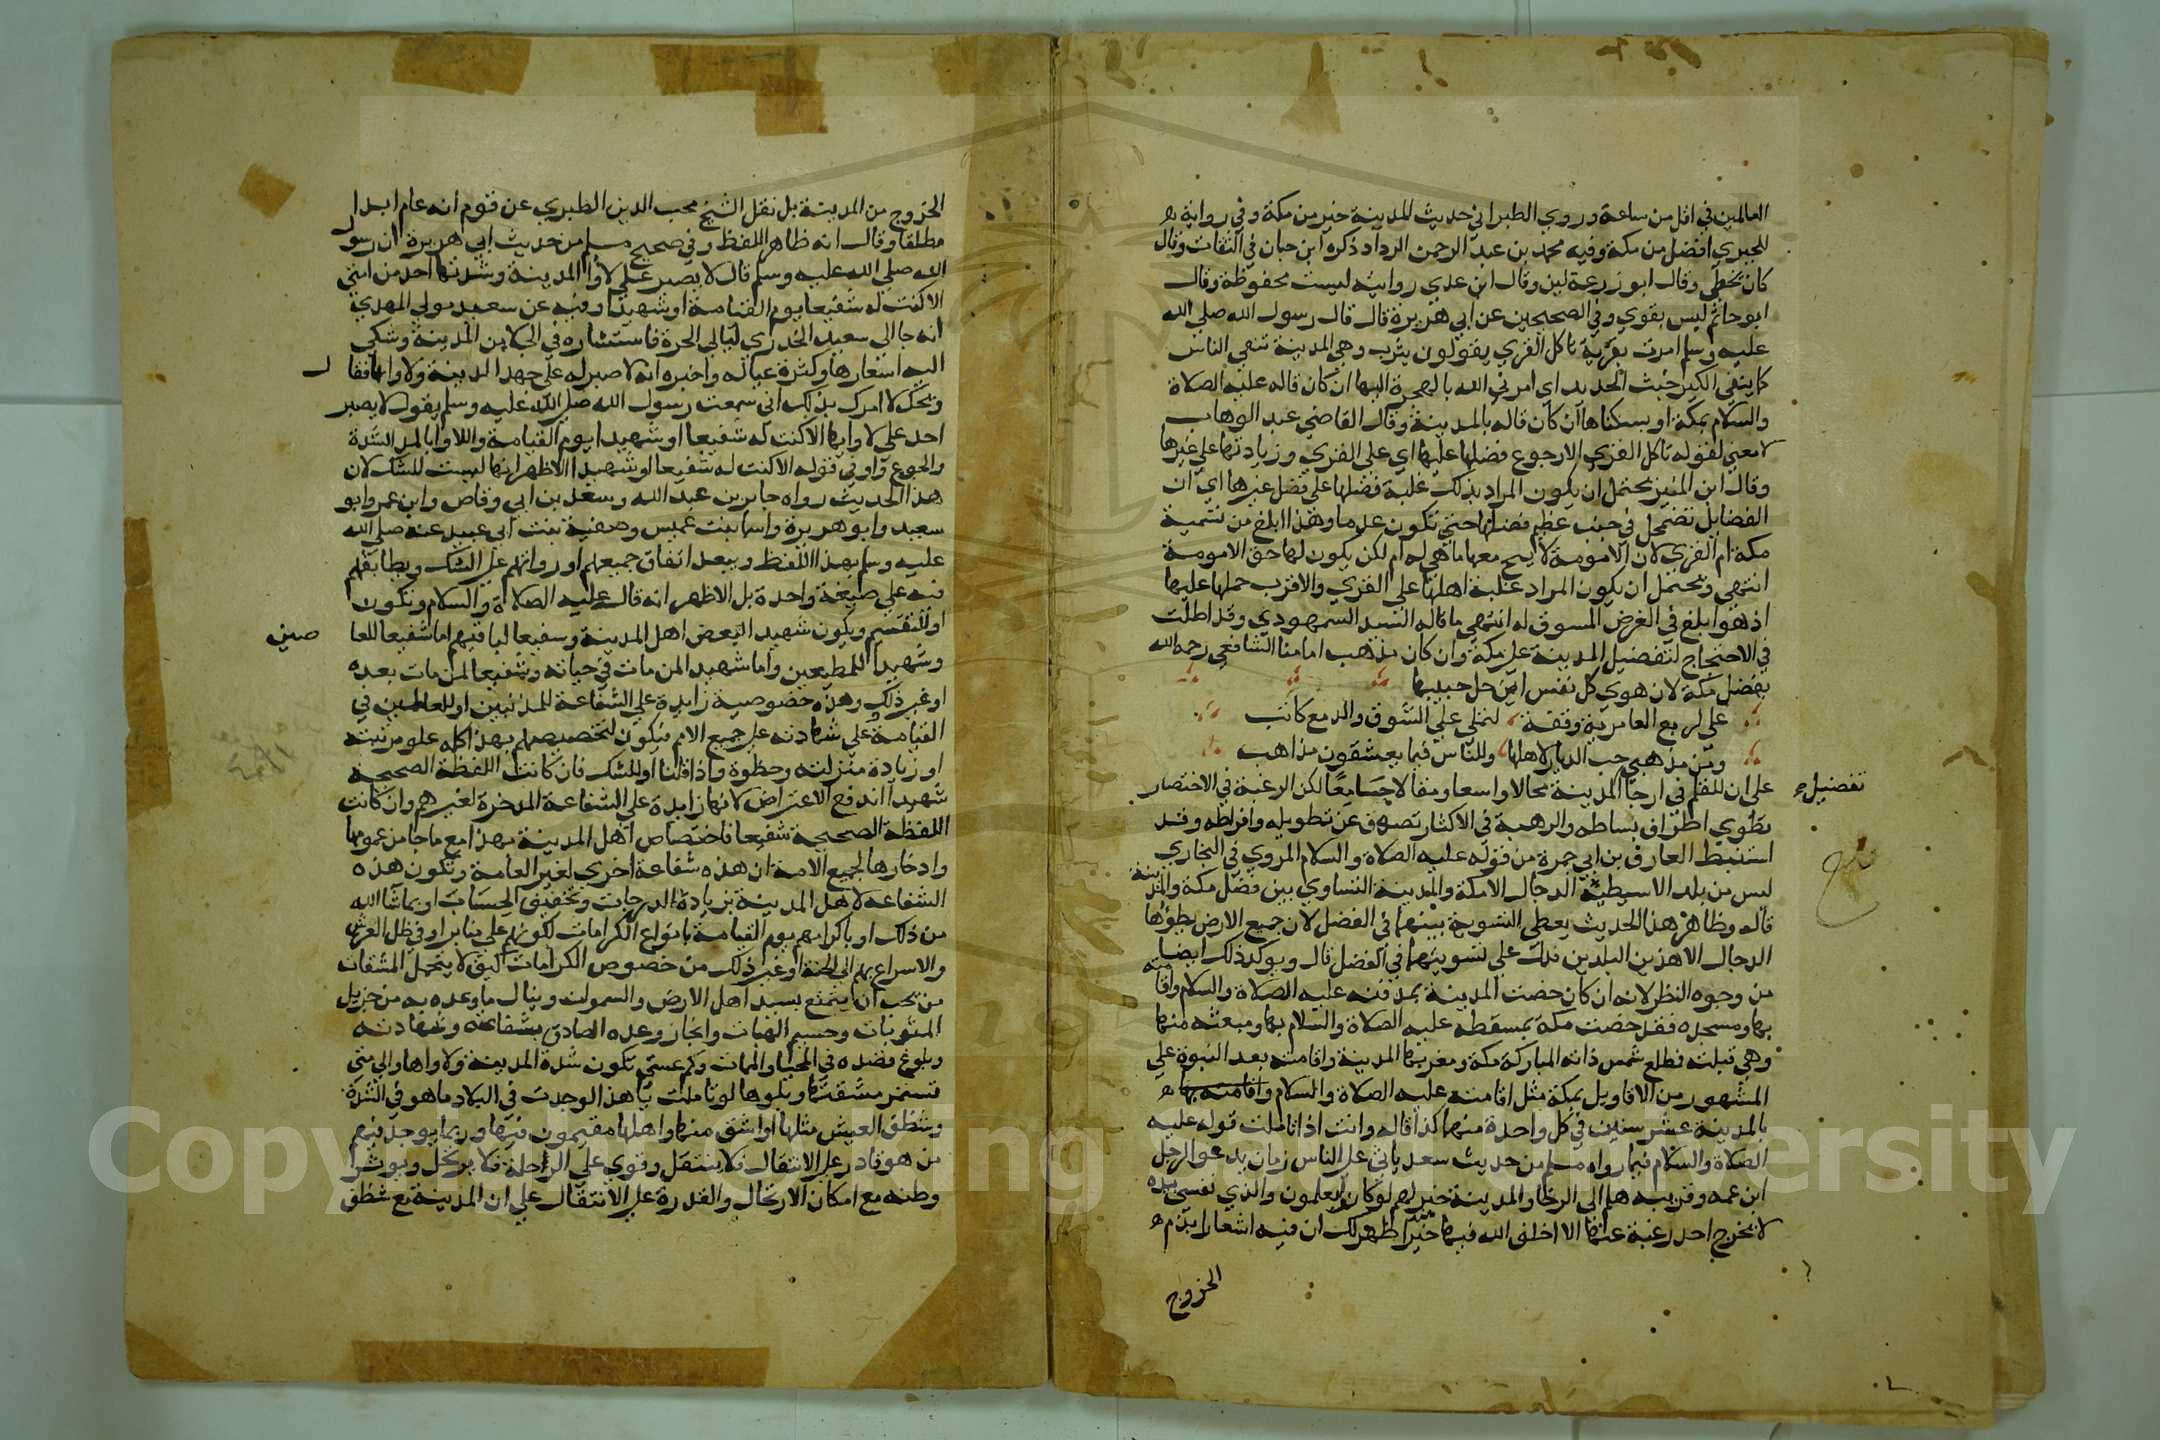 العالمين في اقل من ساعة وروي الطبراني حديث المدينة خير من مكة وفي رواية
للجبري افضل من مكة وفيه محمد بن عبد الرحمن الرداد ذكره ابن حبان في الثقات وقال
كان يخطي وقال ابو زرعة لين وقال ابن عدي روايته ليست محفوظة وقال
ابو حاتم ليس بقوي وفي الصحيحين عن ابي هريرة قال قال رسول الله صلي الله
عليه وسلم امرت بقرية تاكل القري يقولون يثرب وهي المدينة تنفي الناس
كما ينفي الكير خبث الحديد اي امرني الله بالهجرة اليها ان كان قاله عليه الصلاة
والسلام بمكة او بسكناها ان كان قاله بالمدينة وقال القاضي عبد الوهاب
لا معني لقوله تاكل القري الا رجوع فضلها عليها اي علي القري وزيادتها علي غيرها
وقال ابن المنير يحتمل ان يكون المراد بذلك غلبة فضلها علي فضل غيرها اي ان
الفضايل تضمحل في جنب عظيم فضلها حتي تكون عدما وهذا ابلغ من تسمية
مكة ام القري لان الامومة لا ينمحي معها ما هي له ام لكن يكون لها حق الامومة
انتهي ويحتمل ان يكون المراد غلبة اهلها علي القري والاقرب حملها عليهما
اذ هو ابلغ في الغرض المسوق له انتهي ما قاله السيد السمهودي وقد اطلت
في الاحتجاج لتفضيل المدينة علي مكة وان كان مذهب امامنا الشافعي رحمه الله
بفضل مكة لان هوي كل نفس اين حل حبيبها
علي لربع العامرية وقفة ليملي علي الشوق والدمع كاتب
ومن مذهبي حب الديار لاهلها وللناس فيما يعشقون مذاهب
علي ان للقلم في ارجا المدينة مجالا واسعا ومقالا جامعا لكن الرغبة في الاختصار
تفضيل
تطوي اطراف بساطه والرهبة في الاكثار تصرف عن تطويله وافراطه وقد
استنبط العارف بن ابي جمرة من قوله عليه الصلاة والسلام المروي في البخاري
ليس من بلد الا سيطئه الدجال الا مكة والمدينة التساوي بين فضل مكة والمدينة
قال وظاهر هذا الحديث يعطي التسوية بينهما في الفضل لان جميع الارض يطؤها
الدجال الا هذين البلدين فدل علي تسويتهما في الفضل قال ويوكد ذلك ايضا
من وجوه النظر لانه ان كان خصت المدينة بمدفنه عليه الصلاة والسلام واقامته
بها ومسجده فقد خصت مكة بمسقطه عليه الصلاة والسلام بها ومبعثه منها
وهي قبلته فطلع شمس ذاته المباركة مكة ومغربها المدينة واقامته بعد النبوة علي
المشهور من الاقاويل بمكة مثل اقامته عليه الصلاة والسلام واقامته بها
بالمدينة عشر سنين في كل واحدة منهما كذا قاله وانت اذا تاملت قوله عليه
الصلاة والسلام فيما رواه مسلم من حديث سعد ياتي علي الناس زمان يدعو الرجل
ابن عمه وقريبه هلم الي الرخا والمدينة خير لهم لو كانوا يعلمون والذي نفسي بيده
لا يخرج احد رغبة عنها الا اخلف الله فيها خيرا ظهر لك ان فيه اشعارا بذم
الخروج
الخروج من المدينة بل نقل الشيخ محب الدين الطبري عن قوم انه عام ابدا
مطلقا وقال انه ظاهر اللفظ وفي صحيح مسلم من حديث ابي هريرة ان رسول
الله صلي الله عليه وسلم قال لا يصبر علي لاوا المدينة وشدتها احد من امتي
الا كنت له شفيعا يوم القيامة او شهيدا وفيه عن سعيد مولي المهدي
انه جا الي سعيد الخدري ليالي الحرة فاستشاره في الجلا من المدينة وشكي
اليه اسعارها وكثرة عياله واخبره انه لا صبر له علي جهد المدينة ولاواها فقال
ويحك لا امرك بذلك اني سمعت رسول الله صلي الله عليه وسلم يقول لا يصبر
احد علي لاواها الا كنت له شفيعا او شهيدا يوم القيامة واللاوا بالمد الشدة
والجوع واو في قوله الا كنت له شفيعا او شهيدا الاظهر انها ليست للشك لان
هذا الحديث رواه جابر بن عبد الله وسعد بن ابي وقاص وابن عمر وابو
سعيد وابو هريرة واسما بنت عميس وصفية بنت ابي عبيد عنه صلي الله
عليه وسلم بهذا اللفظ ويبعد اتفاق جميعهم او رواتهم علي الشك وتطابقهم
فيه علي صيغة واحدة بل الاظهر انه قاله عليه الصلاة والسلام وتكون
او للتقسيم ويكون شهيدا لبعض اهل المدينة وشفيعا لباقيهم اما شفيعا للعا
صين
وشهيدا للمطيعين واما شهيدا لمن مات في حياته وشفيعا لمن مات بعده
او غير ذلك وهذه خصوصية زايدة علي الشفاعة للمذنبين او للعالمين في
القيامة وعلي شهادته علي جميع الامم فيكون لتخصيصهم بهذا كله علو مرتبة
او زيادة منزلة وحظوة واذا قلنا او للشك فان كانت اللفظة الصحيحة
شهيدا اندفع الاعتراض لانها زايدة علي الشفاعة المدخرة لغيرهم وان كانت
اللفظة الصحيحة شفيعا فاختصاص اهل المدينة بهذا مع ما جا من عمومها
وادخارها لجميع الامة ان هذه شفاعة اخري لغير العامة وتكون هذه
الشفاعة لاهل المدينة بزيادة الدرجات وتخفيف الحساب او بما شا الله
من ذلك او باكرامهم يوم القيامة بانواع الكرامات لكونهم علي منابر او في ظل العرش
والاسراع بهم الي الجنة او غير ذلك من خصوص الكرامات كيف لا يتحمل المشقات
من يحب ان يتمتع بسيد اهل الارض والسموات وينال ما وعده به من جزيل
المثوبات وجسيم الهبات وانجاز وعده الصادق بشفاعته وشهادته
وبلوغ قصده في المحيا والممات وكم عسي تكون شدة المدينة ولاواها والي متي
تستمر مشقتها وبلوها لو تاملت يا هذا لوجدت في البلاد ما هو في الشدة
وشظف العيش مثلها او اشق منها واهلها مقيمون فيها وربما يوجد فيهم
من هو قادر علي الانتقال فلا ينتقل وقوي علي الرحلة فلا يرتحل ويوثر
وطنه مع امكان الارتحال والقدرة علي الانتقال علي ان المدينة مع شظف